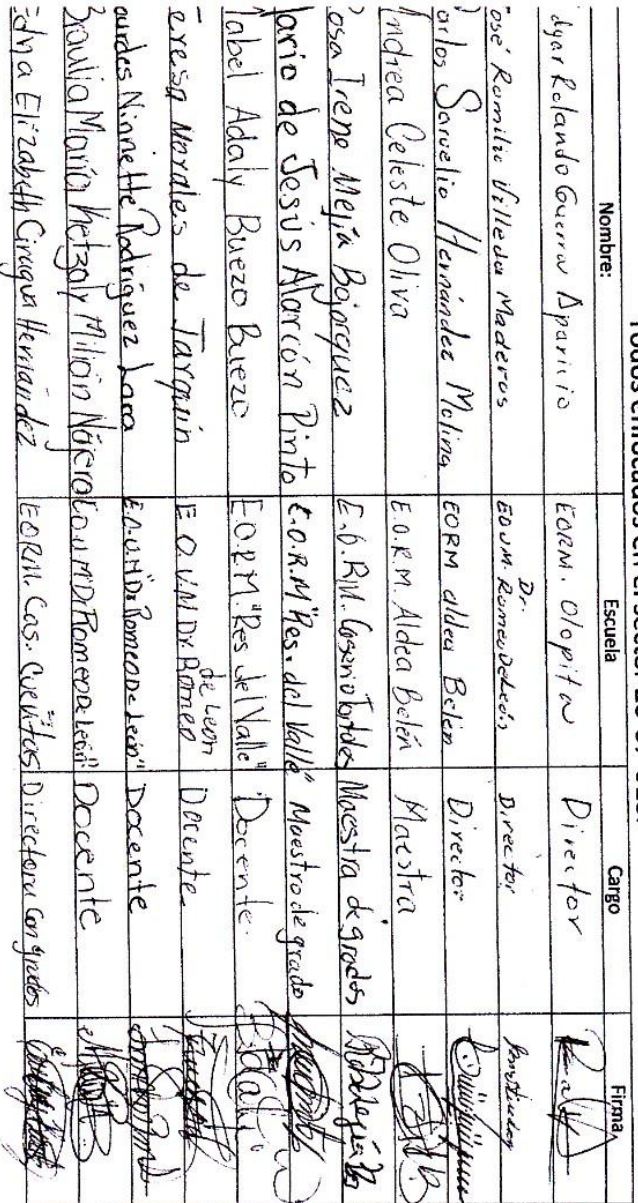 Todos enfocados en
Nombre: Escuela Cargo Firma
dgar Rolando Guerra Aparicio EORM. Olopita Director
osé Romilio Villeda Maderos EOUM. Dr. Romeo De León Director
arlos Sarvelio Hernández Molina EORM aldea Belén Director
Andrea Celeste Oliva E.O.R.M. Aldea Belén Maestra
osa Irene Mejía Bojorquez E.O.R.M. Caserio Maestra de grados
ario de Jesús Alarcón Pinto E.O.R.M "Res. del Valle" Maestro de grado
abel Adaly Buezo Buezo E.O.R.M. "Res del Valle" Docente.
eresa Morales de Tarquin E.O.U.M Dr. Romeo de León Docente.
ourdes Ninnette Rodríguez Lara E.O.U.M "Dr. Romeo De León" Docente
Braulia María Ketzaly Milián Nájera E.O.U.M "Dr. Romeo De León" Docente
Edna Elizabeth Ciragua Hernández EORM. Cas. Cuevitas Directora Con grados